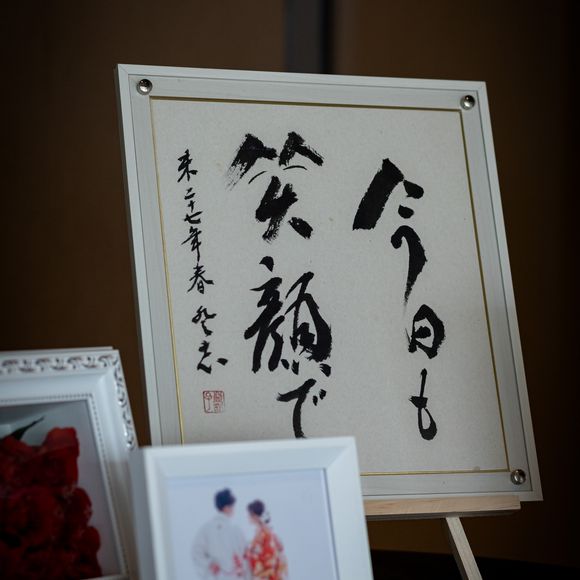 今日も
笑顔で
未二十七年春